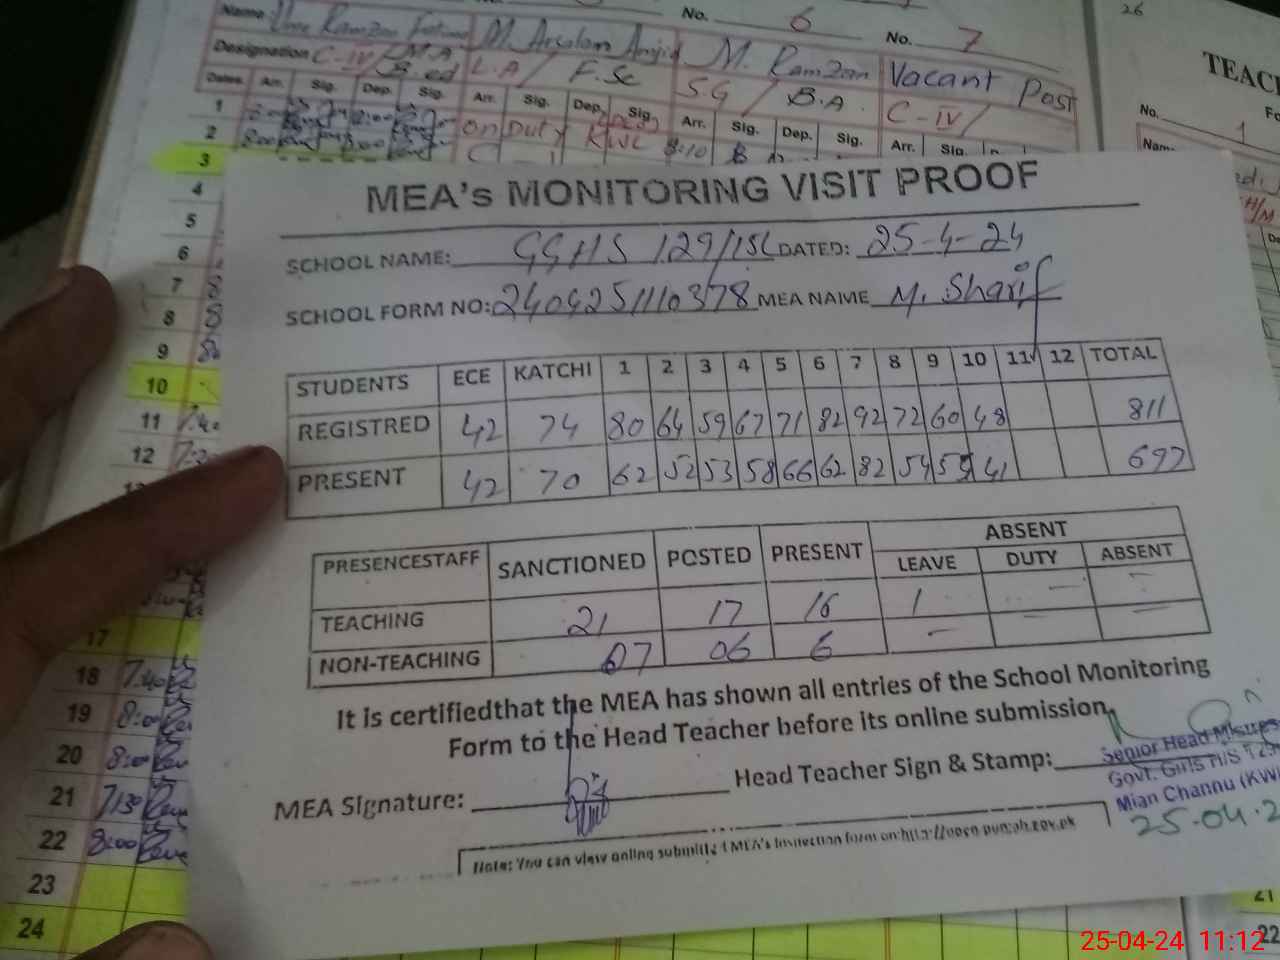 No. 6 No. 7
26
Name M. Arsalan Amjid M. Ramzan Vacant Post
TEAC
Designation C-IV/ M.A B.ed L.A/ F.Sc S.G/ B.A. C-IV/
No. 1 Fo
Dates Arr. Sig. Dep. Sig. Arr. Sig. Dep. Sig. Arr. Sig. Dep. Sig. Arr. Sig.
Nam
1
2 8:00 On Duty KWL 8:10
3
4
5
6
7 8
8 8
9
10
11
12
17
18 7:40
19 8:00
20 8:00
21 7:30
22 8:00
23
24
MEA's MONITORING VISIT PROOF
SCHOOL NAME: GGHS 129/15L DATED: 25-4-24
SCHOOL FORM NO: 24042511110378 MEA NAME M. Sharif
STUDENTS ECE KATCHI 1 2 3 4 5 6 7 8 9 10 11 12 TOTAL
REGISTRED 42 74 80 64 59 67 71 82 92 72 60 48 811
PRESENT 42 70 62 52 53 58 66 62 82 54 55 41 697
PRESENCESTAFF SANCTIONED POSTED PRESENT ABSENT
LEAVE DUTY ABSENT
TEACHING 21 17 16 1 - -
NON-TEACHING 07 06 6 - - -
It is certifiedthat the MEA has shown all entries of the School Monitoring
Form to the Head Teacher before its online submission.
MEA Signature: Head Teacher Sign & Stamp:
Senior Head Mistres
Govt. Girls H/S 129
Mian Channu (KW
25.04.2
Note: You can view online submitted MEA's Inspection form on:http://open.punjab.gov.pk
21
22
25-04-24 11:12